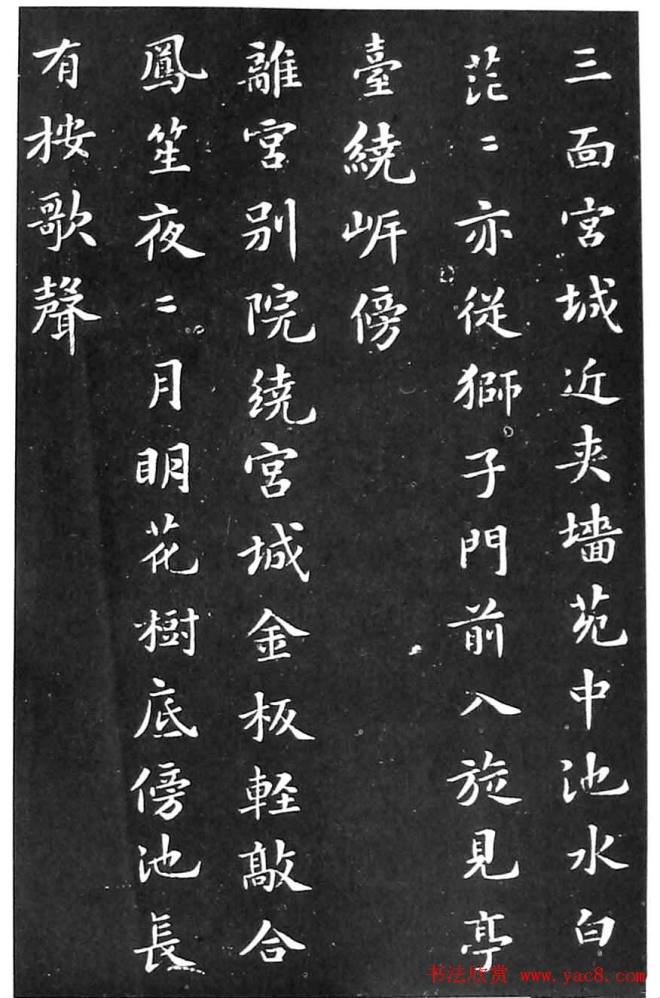 三面宮城近夾墻苑中池水白
茫〻亦從獅子門前入旋見亭
臺繞岓傍
離宮別院繞宮城金板軽敲合
鳳笙夜〻月明花樹底傍池長
有按歌聲
书法欣赏 www.yac8.com